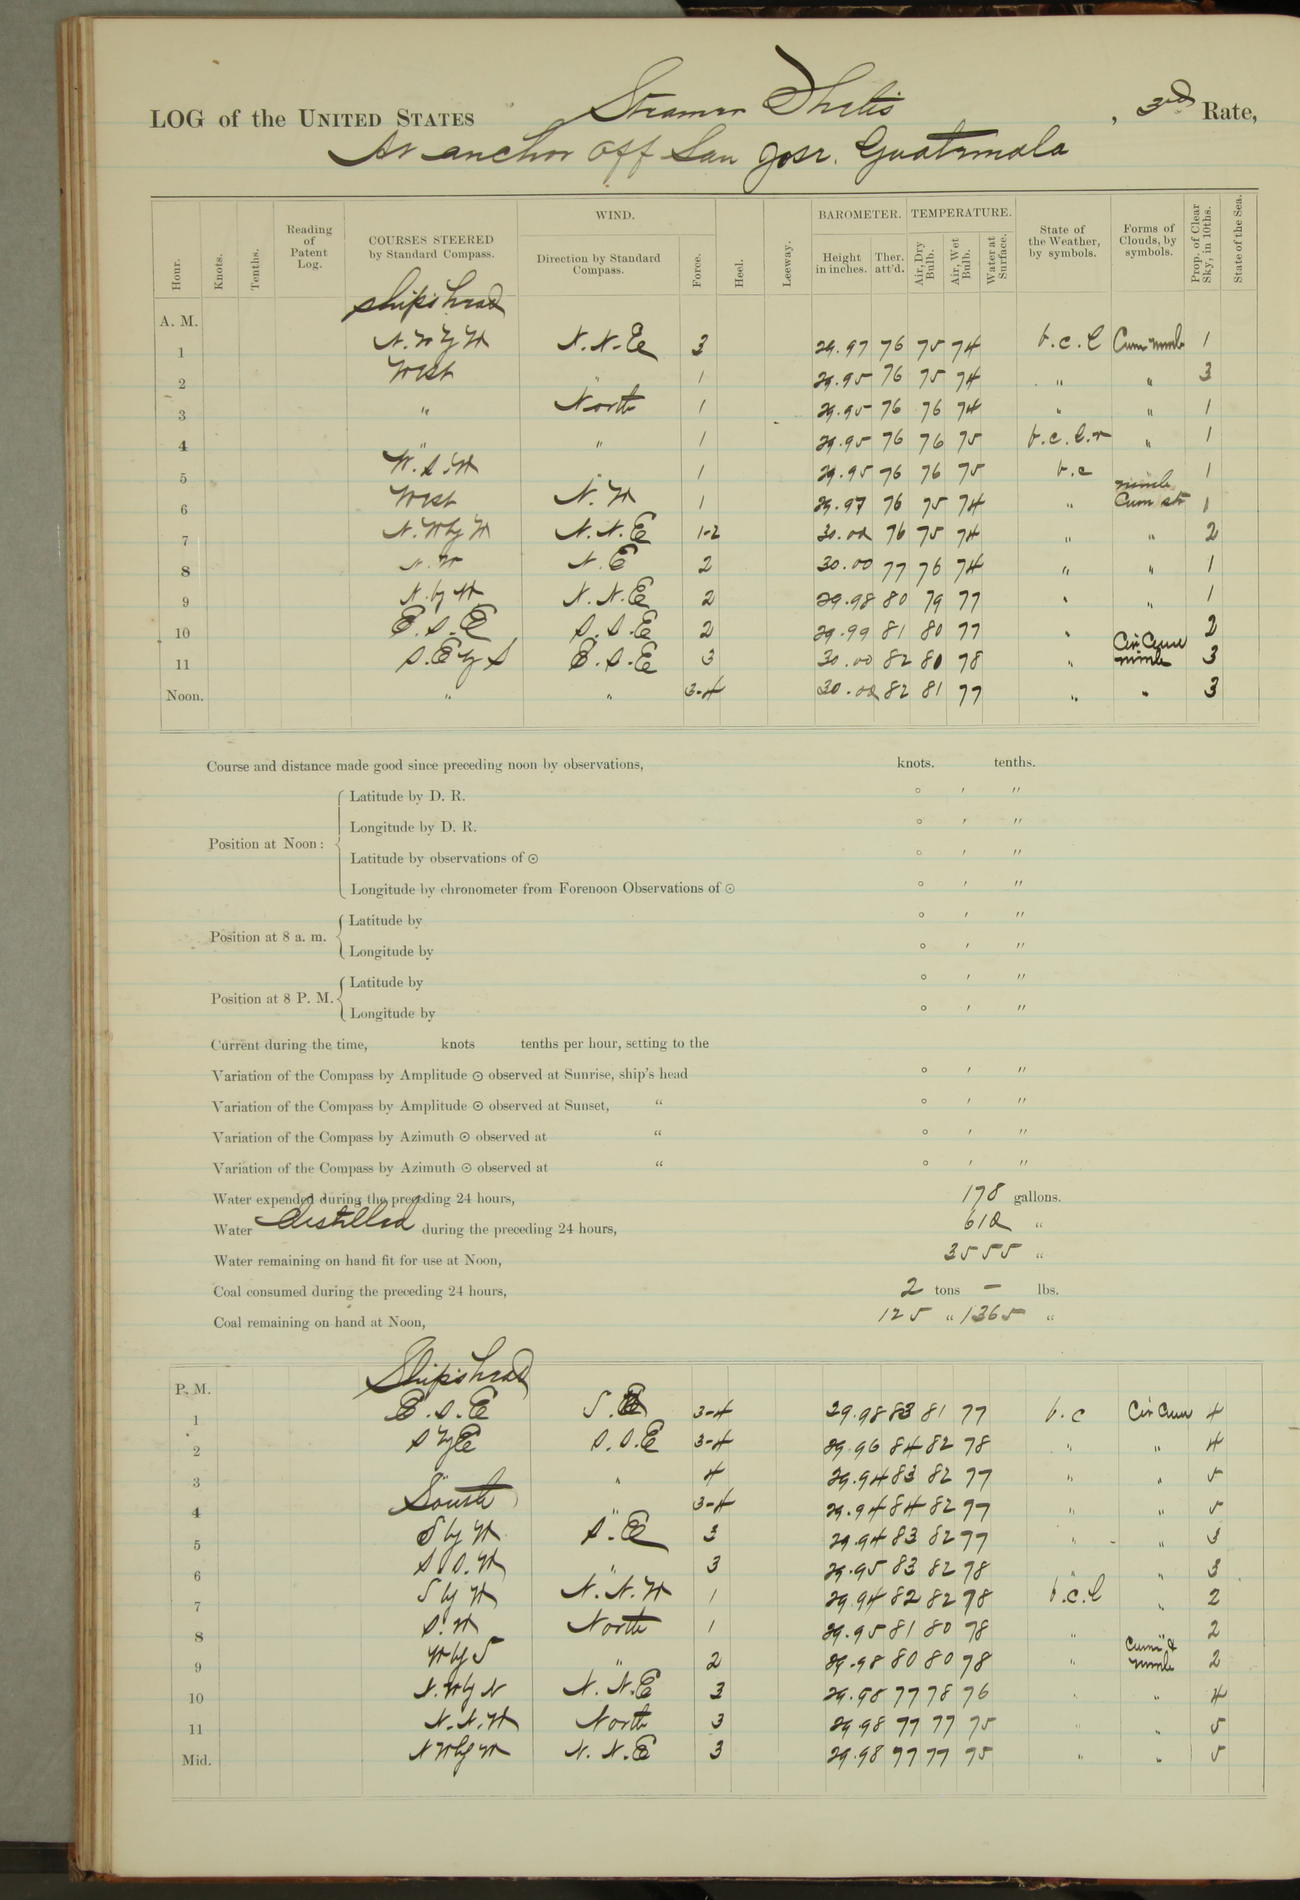 LOG of the UNITED STATES Steamer Thetis, 3rd Rate,
At anchor off San Jose. Guatemala
Hour. Knots. Tenths. Reading of Patent Log. COURSES STEERED by Standard Compass. WIND. Direction by Standard Compass. Force. Heel. Leeway. BAROMETER. Height in inches. Ther. att'd. TEMPERATURE. Air, Dry Bulb. Air, Wet Bulb. Water at Surface. State of the Weather, by symbols. Forms of Clouds, by symbols. Prop. of Clear Sky, in 10ths. State of the Sea.
ship's head
A. M.
1 N.W by W N.N.E 3 29.97 76 75 74 b.c.l Cum nimb 1
2 West " 1 29.95 76 75 74 " " 3
3 " North 1 29.95 76 76 74 " " 1
4 " " 1 29.95 76 76 75 b.c.l.r " 1
5 W.S.W " 1 29.95 76 76 75 b.c 1
6 West N.W 1 29.97 76 75 74 " nimb Cum str 1
7 N.W by W N.N.E 1-2 30.02 76 75 74 " " 2
8 N.W N.E 2 30.00 77 76 74 " " 1
9 N. by W N.N.E 2 29.98 80 79 77 " " 1
10 E.S.E S.S.E 2 29.99 81 80 77 " 2
11 S.E by S E.S.E 3 30.00 82 80 78 " Cir Cum nimb 3
Noon. " " 3-4 30.02 82 81 77 " " 3
Course and distance made good since preceding noon by observations, knots. tenths.
Position at Noon: Latitude by D. R. ° ′ ″
Longitude by D. R. ° ′ ″
Latitude by observations of ⊙ ° ′ ″
Longitude by chronometer from Forenoon Observations of ⊙ ° ′ ″
Position at 8 a. m. Latitude by ° ′ ″
Longitude by ° ′ ″
Position at 8 P. M. Latitude by ° ′ ″
Longitude by ° ′ ″
Current during the time, knots tenths per hour, setting to the
Variation of the Compass by Amplitude ⊙ observed at Sunrise, ship's head ° ′ ″
Variation of the Compass by Amplitude ⊙ observed at Sunset, " ° ′ ″
Variation of the Compass by Azimuth ⊙ observed at " ° ′ ″
Variation of the Compass by Azimuth ⊙ observed at " ° ′ ″
Water expended during the preceding 24 hours, 178 gallons.
Water distilled during the preceding 24 hours, 612 "
Water remaining on hand fit for use at Noon, 3555 "
Coal consumed during the preceding 24 hours, 2 tons — lbs.
Coal remaining on hand at Noon, 125 " 1365 "
Ship's head
P. M.
1 E.S.E S.E 3-4 29.98 83 81 77 b.c Cir Cum 4
2 S by E S.S.E 3-4 29.96 84 82 78 " " 4
3 " " 4 29.94 83 82 77 " " 5
4 South " 3-4 29.94 84 82 77 " " 5
5 S by W S.E 3 29.94 83 82 77 " " 3
6 S.S.W " 3 29.95 83 82 78 " " 3
7 S by W N.N.W 1 29.94 82 82 78 b.c.l " 2
8 S.W North 1 29.95 81 80 78 " " 2
9 W by S " 2 29.98 80 80 78 " Cum & nimb 2
10 N.W by N N.N.E 3 29.98 77 78 76 " " 4
11 N.N.W North 3 29.98 77 77 75 " " 5
Mid. N W by W N.N.E 3 29.98 77 77 75 " " 5